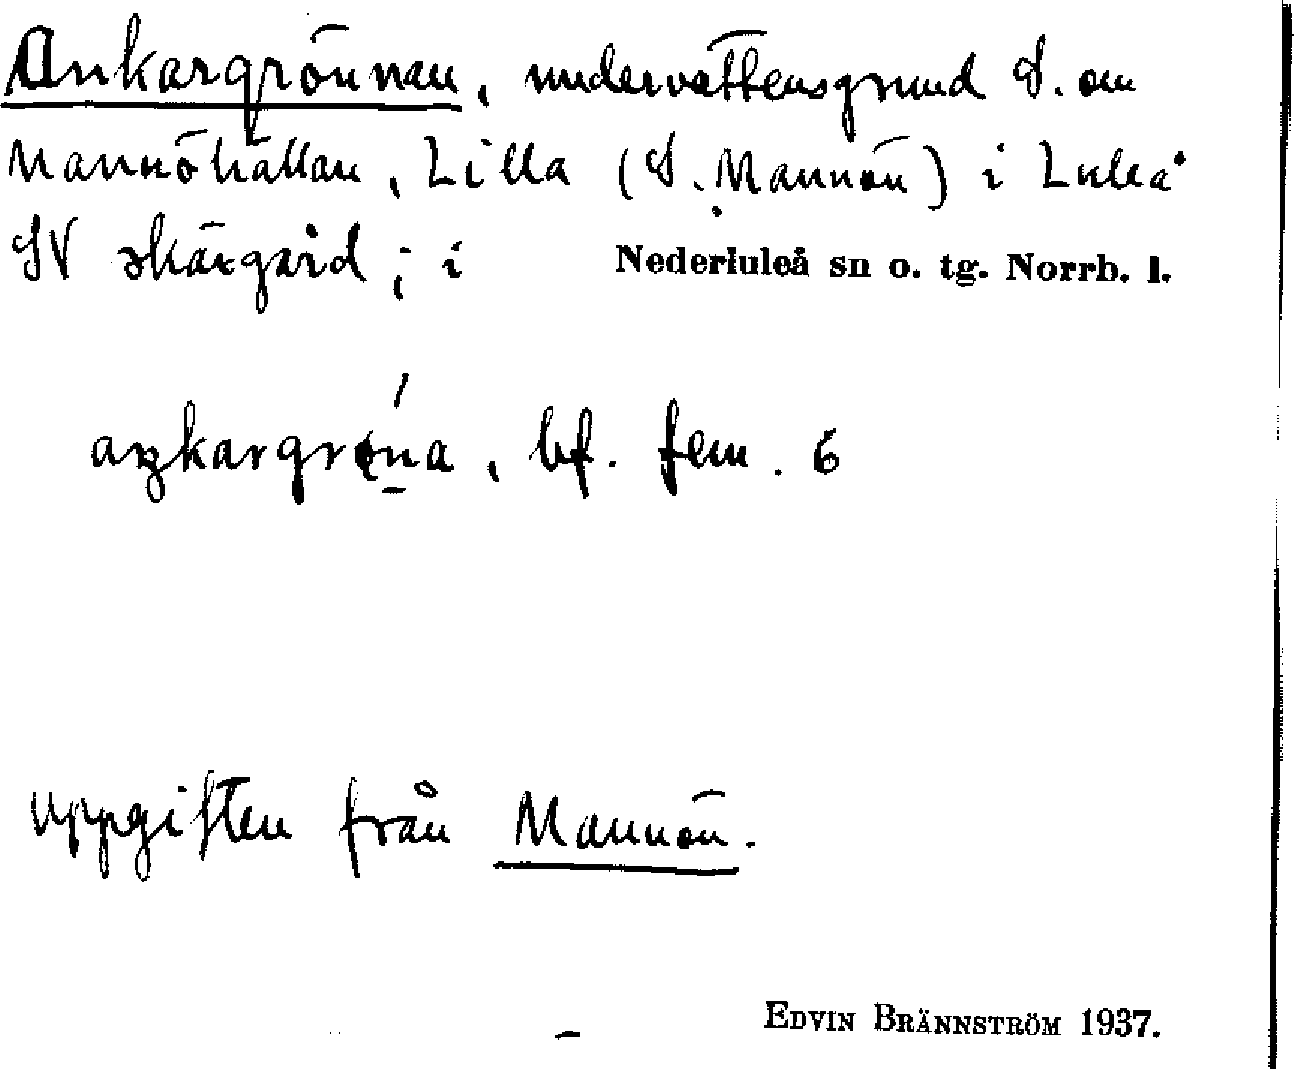 Ankargrönnan, undervattensgrund S. om
Mannöhällan, Lilla (S. Mannön) i Luleå
SV skärgård; i Nederluleå sn o. tg. Norrb. l.
bf. fem. 6
uppgiften från Mannön.
EDVIN BRÄNNSTRÖM 1937.